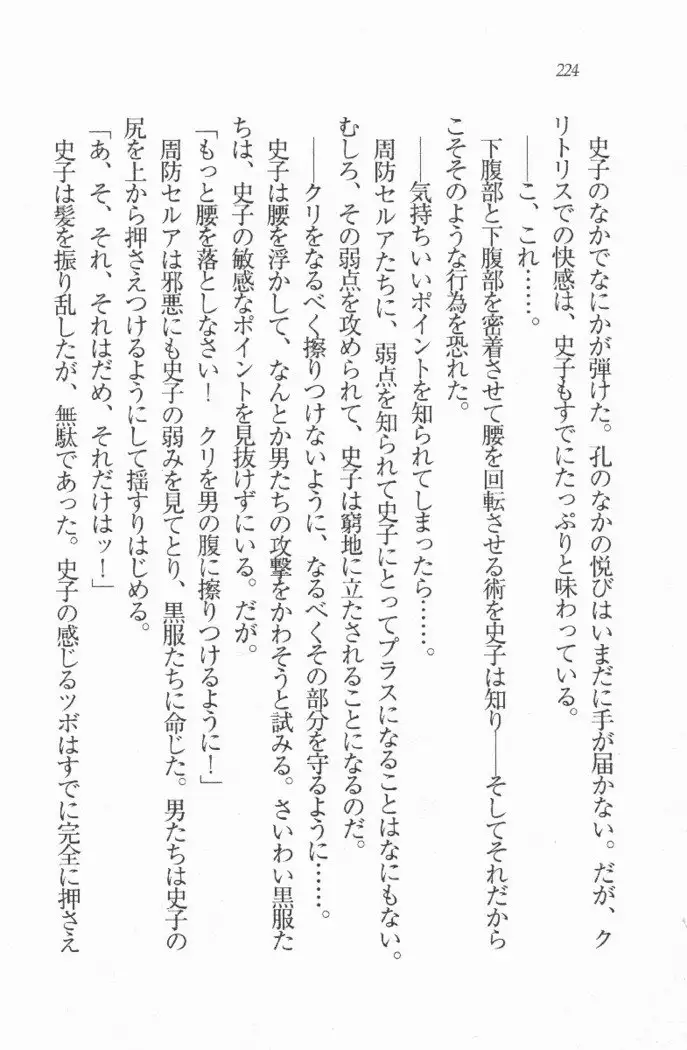 224
史子のなかでなにかが弾けた。孔のなかの悦びはいまだに手が届かない。だが、ク
リトリスでの快感は、史子もすでにたっぷりと味わっている。
――こ、これ……。
下腹部と下腹部を密着させて腰を回転させる術を史子は知り――そしてそれだから
こそそのような行為を恐れた。
――気持ちいいポイントを知られてしまったら……。
周防セルアたちに、弱点を知られて史子にとってプラスになることはなにもない。
むしろ、その弱点を攻められて、史子は窮地に立たされることになるのだ。
――クリをなるべく擦りつけないように、なるべくその部分を守るように……。
史子は腰を浮かして、なんとか男たちの攻撃をかわそうと試みる。さいわい黒服た
ちは、史子の敏感なポイントを見抜けずにいる。だが。
「もっと腰を落としなさい！　クリを男の腹に擦りつけるように！」
周防セルアは邪悪にも史子の弱みを見てとり、黒服たちに命じた。男たちは史子の
尻を上から押さえつけるようにして揺すりはじめる。
「あ、そ、それ、それはだめ、それだけはッ！」
史子は髪を振り乱したが、無駄であった。史子の感じるツボはすでに完全に押さえ